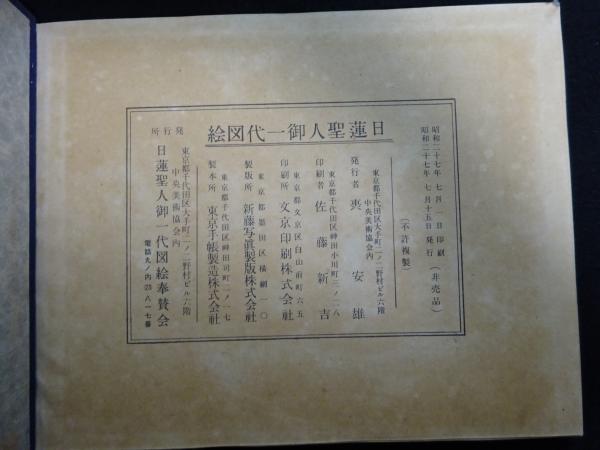 日蓮聖人御一代図絵
昭和二十七年 七月 一日 印刷
昭和二十七年 七月十五日 発行
（非売品）
（不許複製）
東京都千代田区大手町二ノ二野村ビル六階
中央美術協会内
発行者 安雄
東京都千代田区神田小川町三ノ二八
印刷者 佐藤新吉
東京都文京区白山前町六五
印刷所 文京印刷株式会社
東京都墨田区横網一ノ一〇
製版所 新藤写真製版株式会社
東京都千代田区神田司町二ノ一七
製本所 東京手帳製造株式会社
東京都千代田区大手町二ノ二野村ビル六階
中央美術協会内
発行所 日蓮聖人御一代図絵奉賛会
電話丸ノ内(23)八一七番